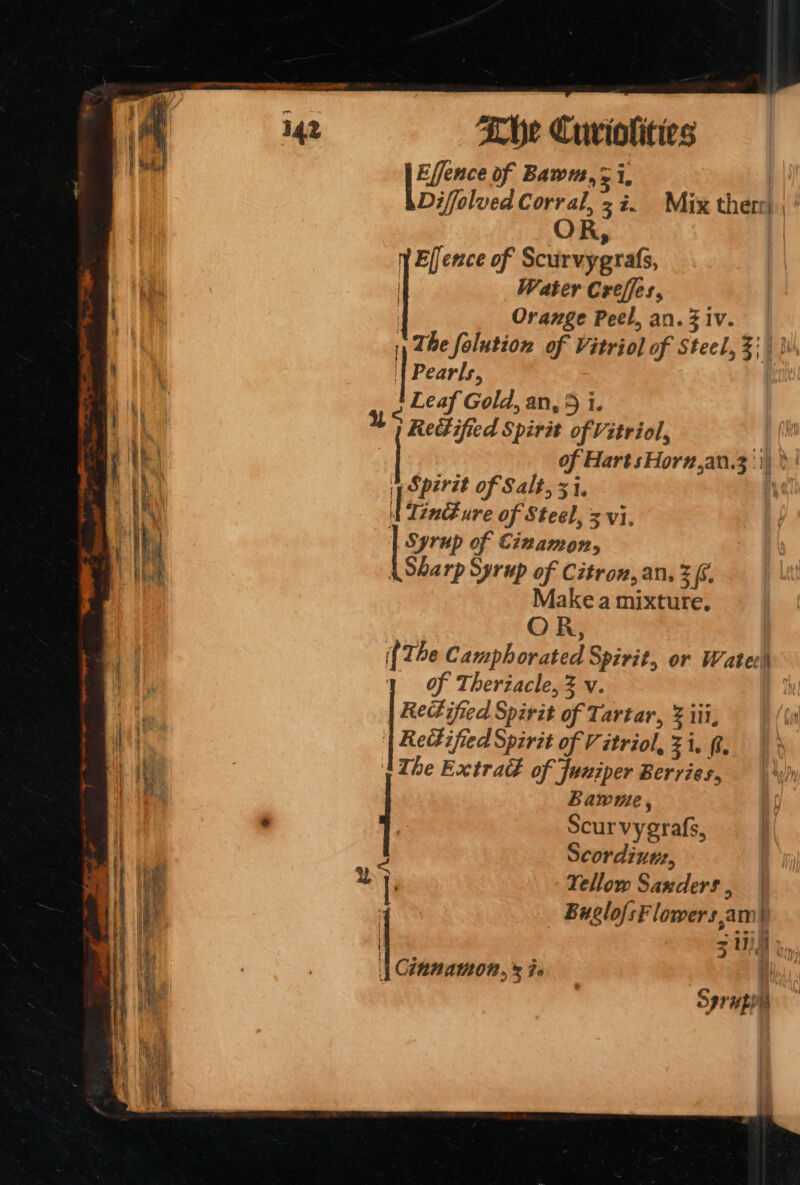 142 The Curiosities
Eſſence of Bawm, ʒ i,
Diſſolved Corral, ʒ i. Mix them
OR,
Eſſence of Scurvygraſs,
Water Creſſes,
Orange Peel, an. ℥ iv.
The ſolution of Vitriol of Steel, ℥
Pearls,
Leaf Gold, an, ℈ i.
℞ Rectified Spirit of Vitriol,
of Harts Horn, an. ʒ ij
Spirit of Salt, ʒ i,
Tincture of Steel, ʒ vi.
Syrup of Cinamon,
Sharp Syrup of Citron, an. ℥ ſſ.
Make a mixture.
OR,
The Camphorated Spirit, or Water
of Theriacle, ℥ v.
Rectified Spirit of Tartar, ℥ iii,
Rectified Spirit of Vitriol, ℥ i. ſſ.
The Extract of Juniper Berries,
Bawme,
Scurvygraſs,
Scordium,
℞ Yellow Sanders,
Bugloſs Flowers, an
ʒ iii
Cinnamon, ʒ i.
Syrup